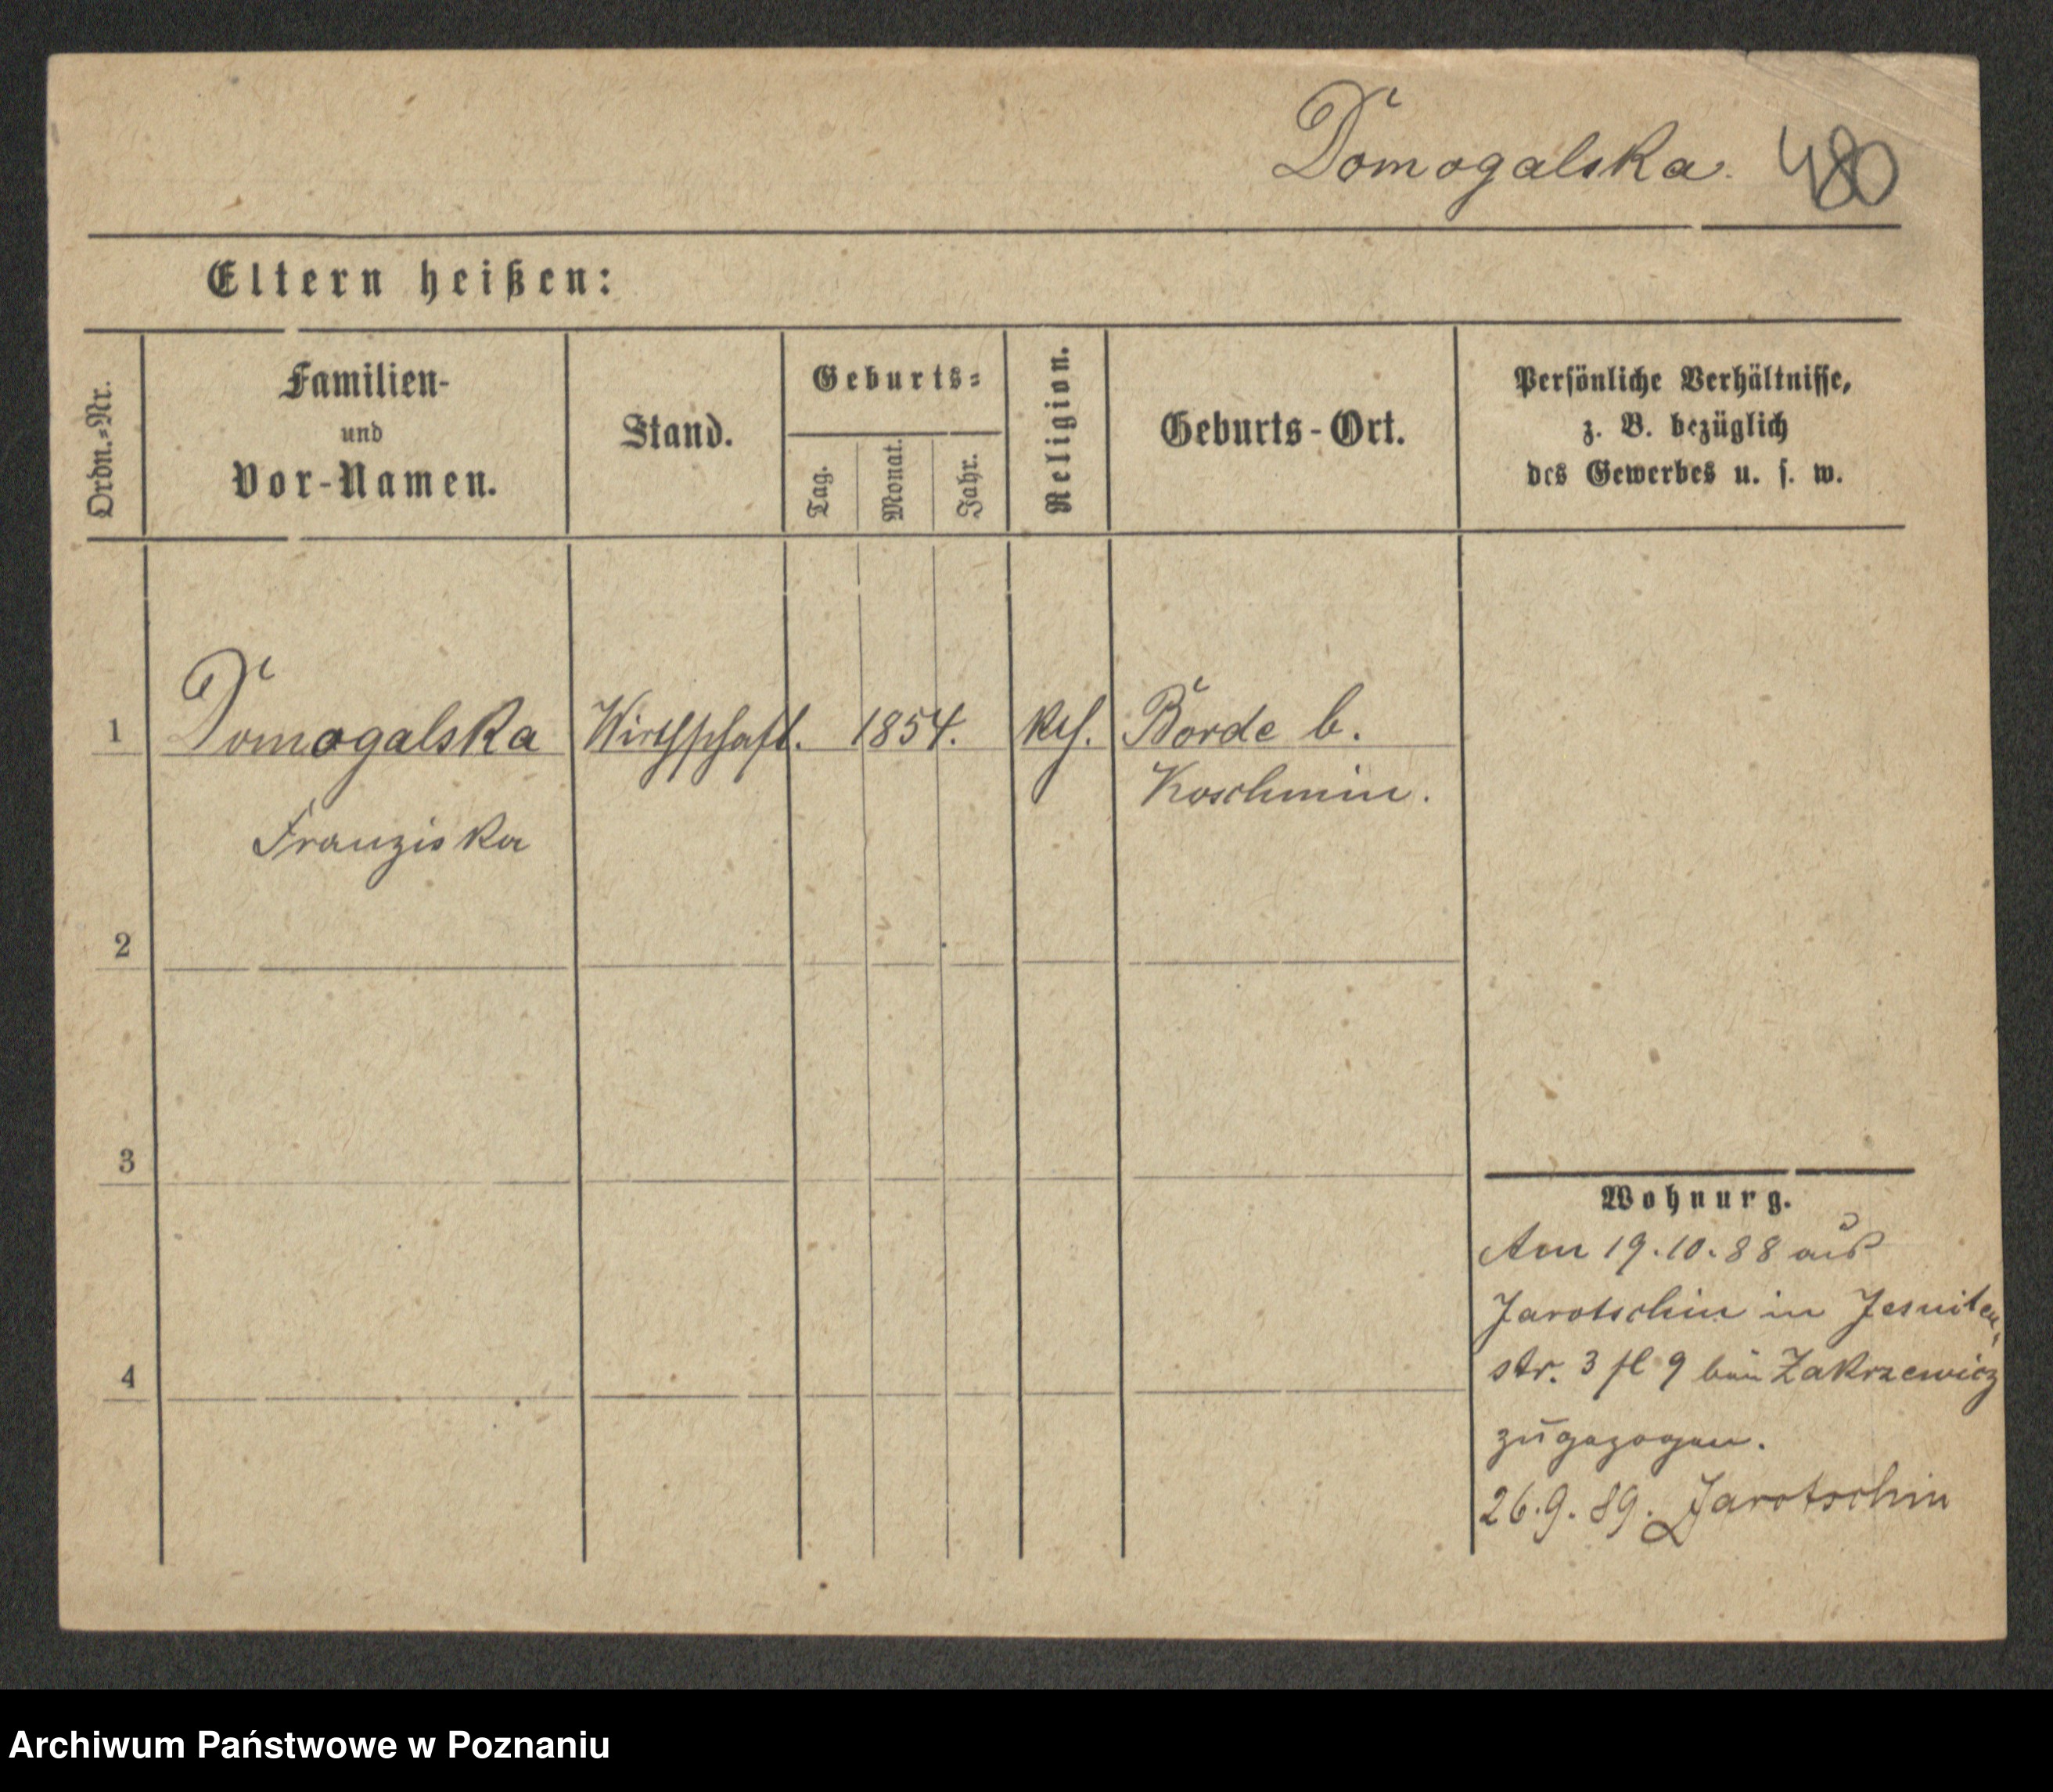 Domogalska. 480
Eltern heißen:
Ordn.-Nr.
Familien-
und
Vor-Namen.
Stand.
Geburts-
Tag.
Monat.
Jahr.
Religion.
Geburts-Ort.
Persönliche Verhältnisse,
z. B. bezüglich
des Gewerbes u. s. w.
1 Domogalska Wirthschaft. 1854. kth. Borde b.
Koschmin.
Franziska
2
3
4
Wohnurg.
Am 19.10.88 aus
Jarotschin in Jesuiten-
str. 3 9 bei Zakrzewicz
zugezogen.
26.9.89. Jarotschin
Archiwum Państwowe w Poznaniu